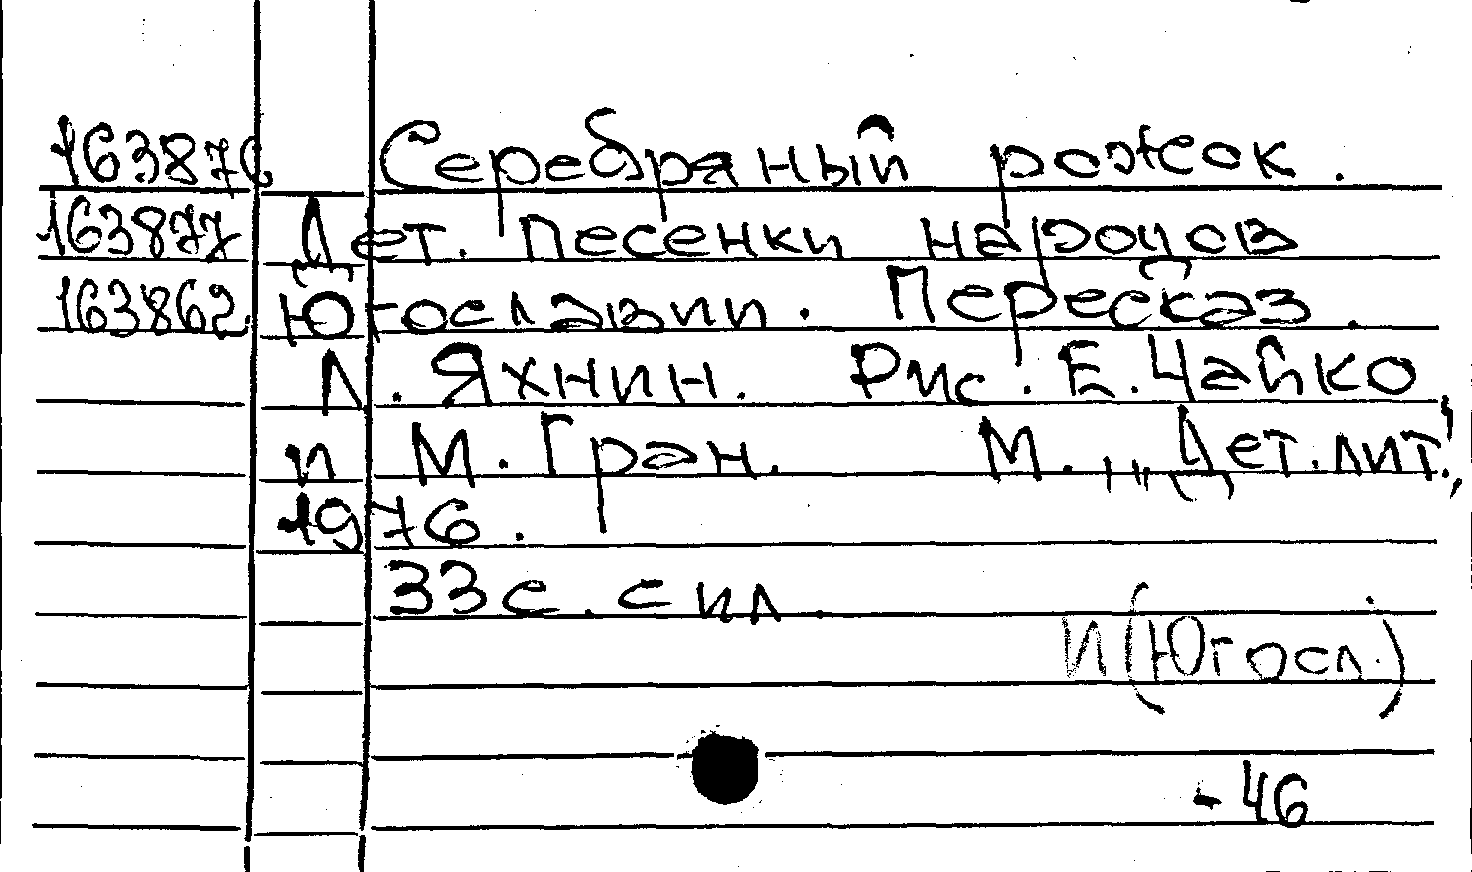 163876 Серебряный рожок.
163877 Дет. песенки народов
163862 Югославии. Пересказ.
Л. Яхнин. Рис. Е. Чайко
и М. Гран. М., „Дет. лит",
1976.
33 с. с ил.
И (Югосл.)
- 46